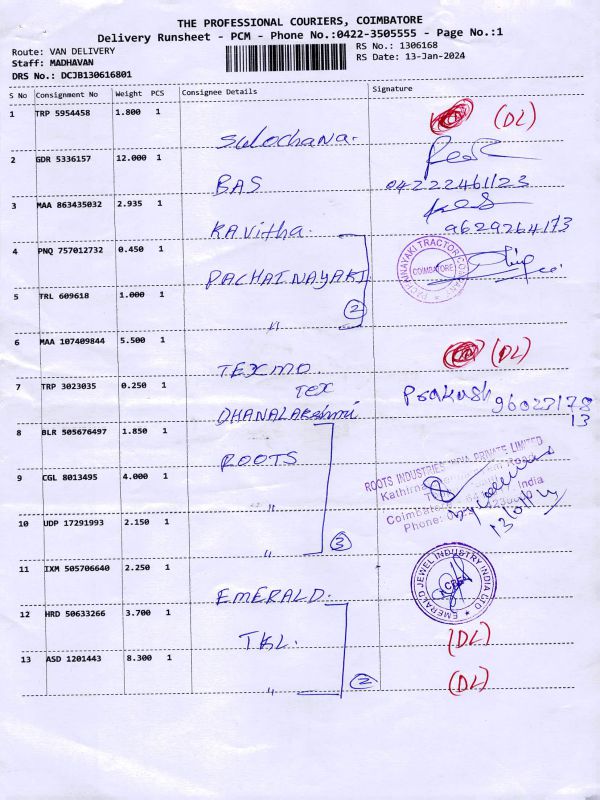 THE PROFESSIONAL COURIERS, COIMBATORE
Delivery Runsheet - PCM - Phone No.:0422-3505555 - Page No.:1
Route: VAN DELIVERY
RS No.: 1306168
Staff: MADHAVAN
RS Date: 13-Jan-2024
DRS No.: DCJB130616801
S No Consignment No Weight PCS Consignee Details Signature
1 TRP 5954458 1.800 1 (DL)
Sulochana.
2 GDR 5336157 12.000 1
BAS 04222461123
3 MAA 863435032 2.935 1
Kavitha. 9629264173
4 PNQ 757012732 0.450 1
PACHAINAYAKI
PACHAINAYAKI TRACTOR COMPANY
COIMBATORE
5 TRL 609618 1.000 1
" 2
6 MAA 107409844 5.500 1 (DL)
TEXMO
7 TRP 3023035 0.250 1
TEX Prakash
DHANALAKshmi
8 BLR 505676497 1.850 1
ROOTS
ROOTS INDUSTRIES INDIA PRIVATE LIMITED
9 CGL 8013495 4.000 1
"
10 UDP 17291993 2.150 1
" 3
11 IXM 505706640 2.250 1
EMERALD.
EMERALD JEWEL INDUSTRY INDIA LTD
12 HRD 50633266 3.700 1
TKL. (DL)
13 ASD 1201443 8.300 1
" 2 (DL)